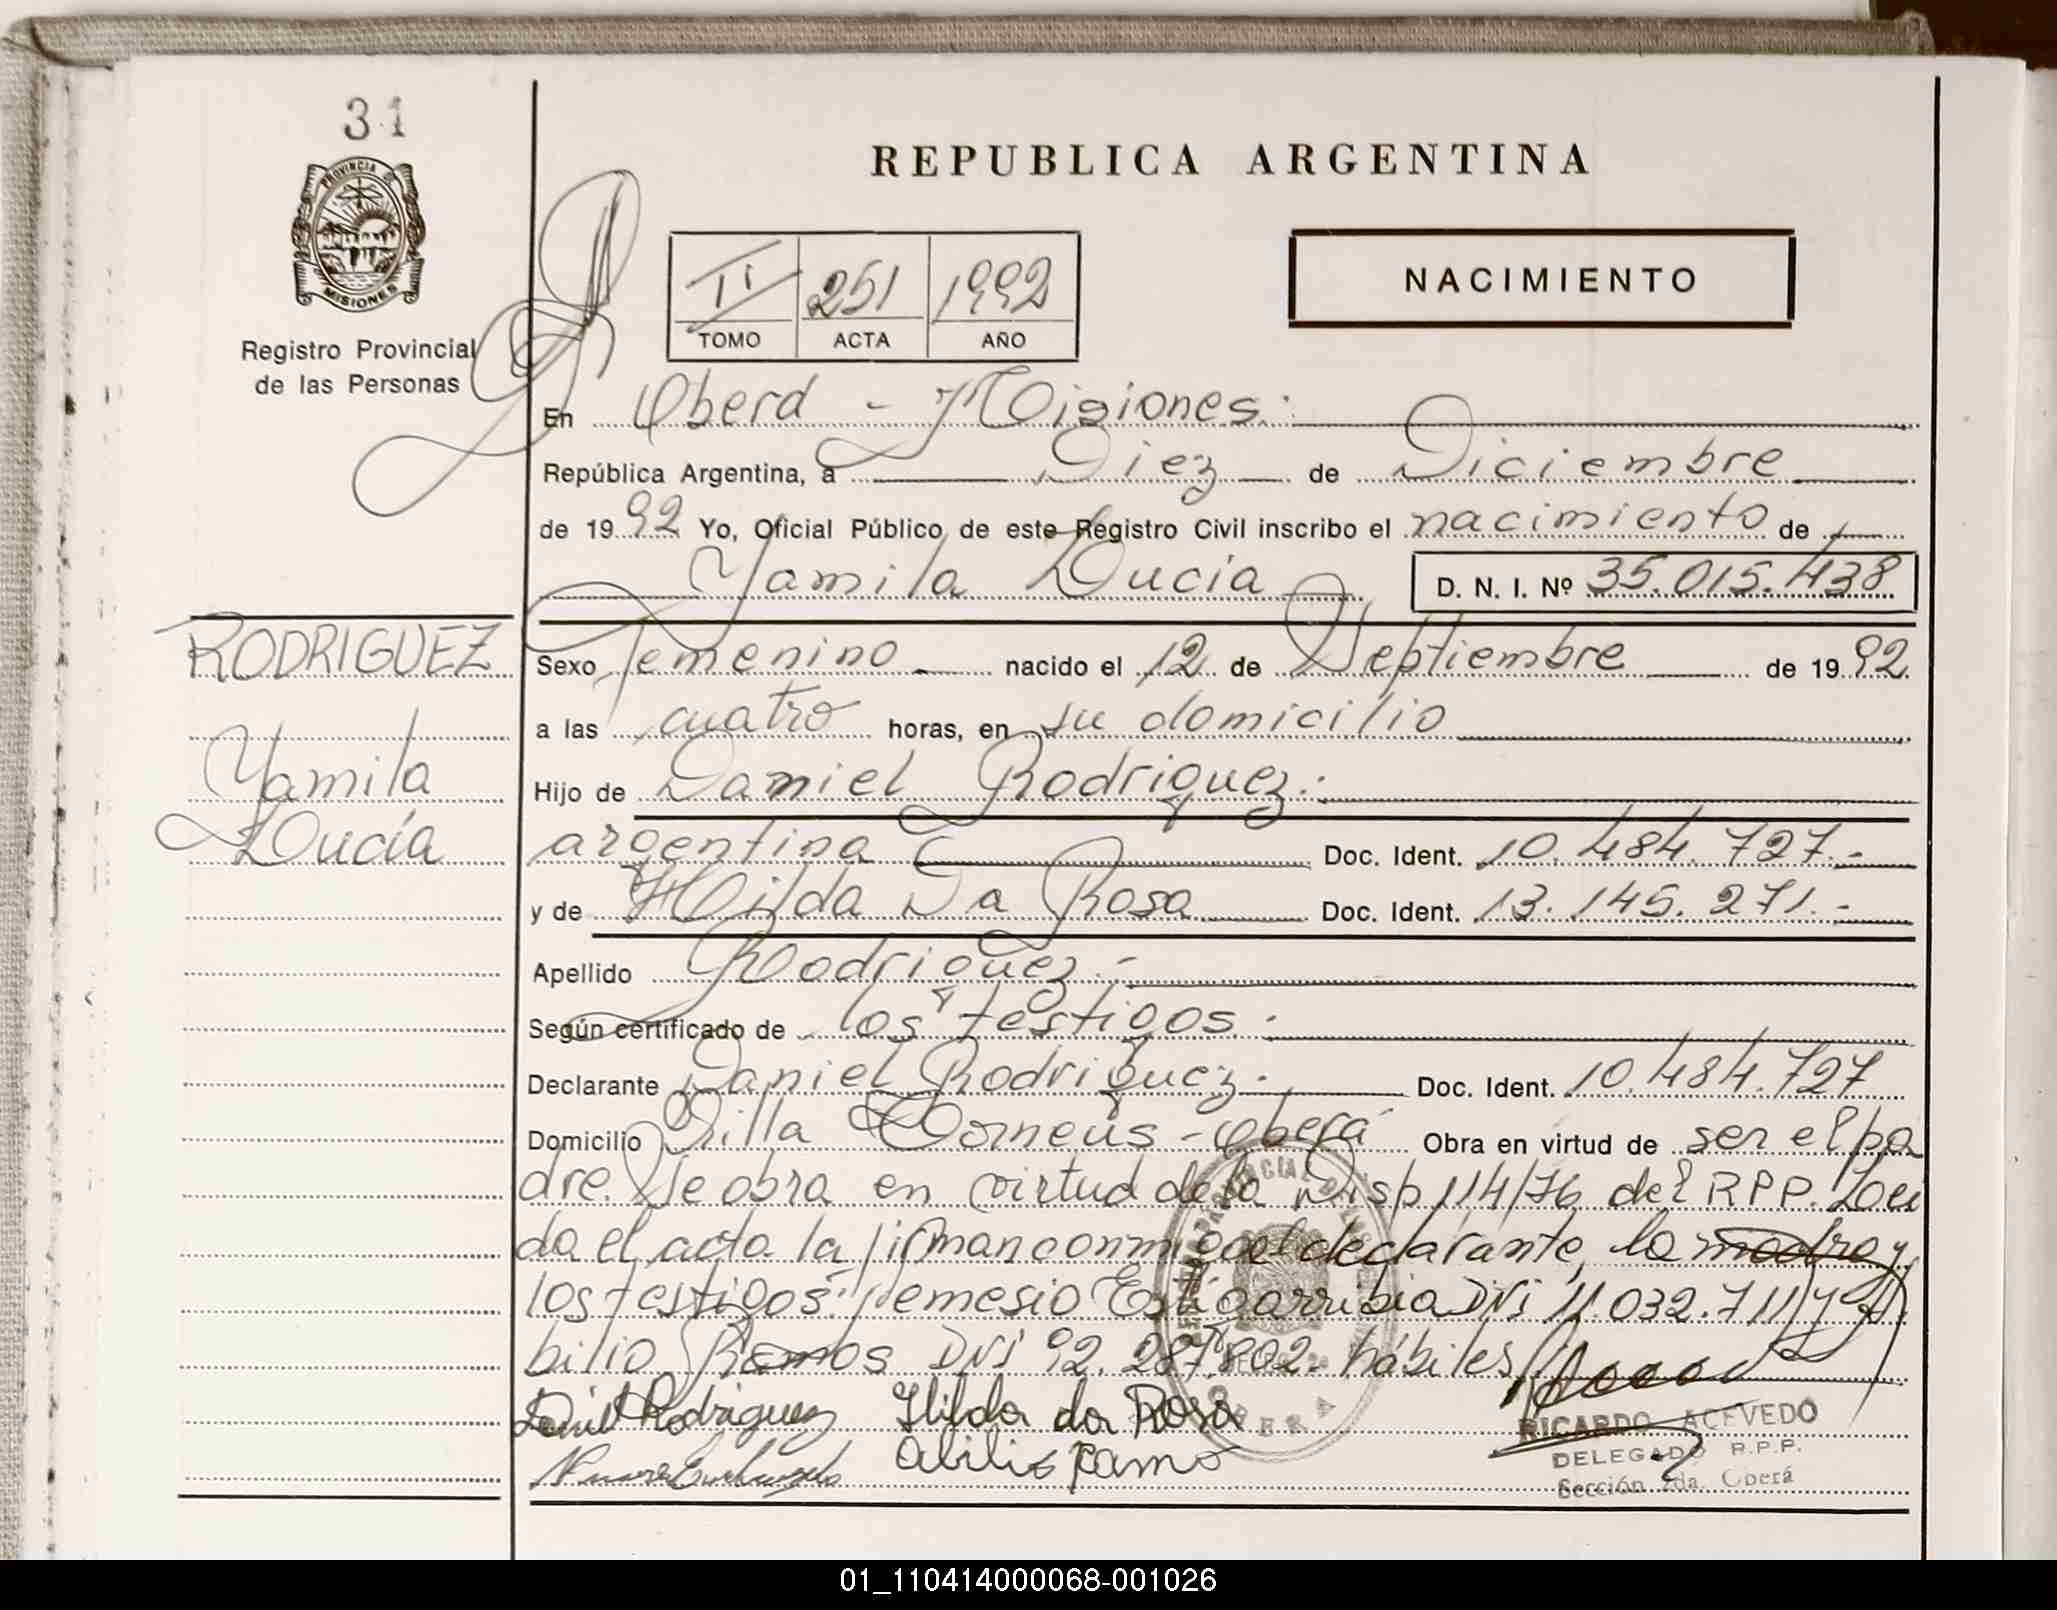 31
REPUBLICA ARGENTINA
PROVINCIA DE
MISIONES
Registro Provincial
de las Personas
II 251 1992
TOMO ACTA AÑO
NACIMIENTO
En Oberá - Misiones.
República Argentina, a Diez de Diciembre
de 1992 Yo, Oficial Público de este Registro Civil inscribo el nacimiento de
Yamila Lucía D. N. I. Nº 35.015.438
RODRIGUEZ
Yamila
Lucía
Sexo femenino nacido el 12 de Septiembre de 1992
a las cuatro horas, en su domicilio
Hijo de Daniel Rodriguez.
argentina Doc. Ident. 10.484.727.-
y de Hilda Da Rosa Doc. Ident. 13.145.271.-
Apellido Rodriguez.-
Según certificado de los testigos.
Declarante Daniel Rodriguez. Doc. Ident. 10.484.727
Domicilio Villa - Oberá Obra en virtud de ser el pa
dre. Se obra en virtud de la Disp 114/76 del R.P.P. Leí
da el acta la firman conmigo el declarante, la madre y
los testigos: Nemesio Estigarribia DNI 11.032.711 y A
bilio Ramos DNI 92.287.802. hábiles
Daniel Rodriguez Hilda da Rosa
abilio Ramo
RICARDO ACEVEDO
DELEGADO R.P.P.
Sección 2da. Oberá
01_110414000068-001026